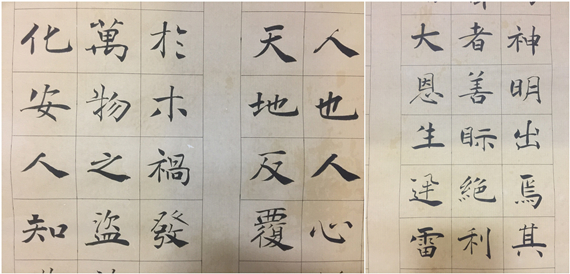 人也人心
天地反覆
於木禍發
萬物之盜
化安人知
神明出焉其
者善眎絕利
大恩生迅雷